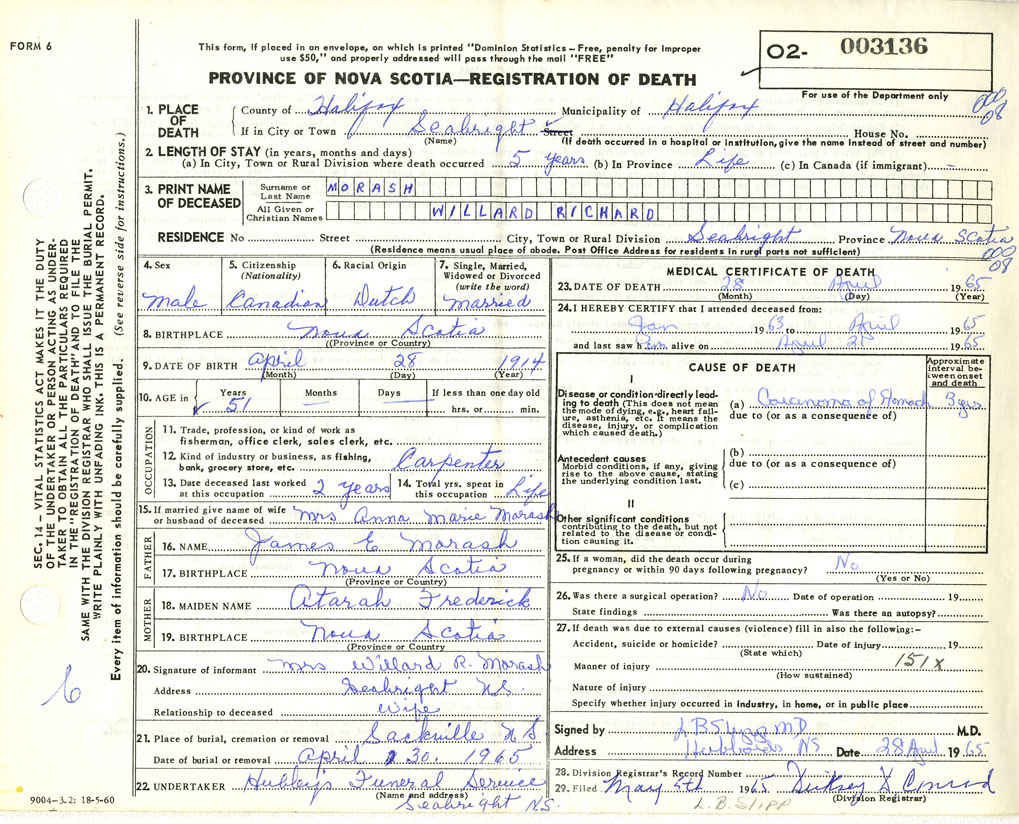 FORM 6
This form, if placed in an envelope, on which is printed "Dominion Statistics – Free, penalty for improper
use $50," and properly addressed will pass through the mail "FREE"
PROVINCE OF NOVA SCOTIA—REGISTRATION OF DEATH
O2- 003136
For use of the Department only
000
08
1. PLACE OF DEATH
County of Halifax Municipality of Halifax
If in City or Town Seabright Street House No.
(Name) (If death occurred in a hospital or institution, give the name instead of street and number)
2. LENGTH OF STAY (in years, months and days)
(a) In City, Town or Rural Division where death occurred 5 years (b) In Province Life (c) In Canada (if immigrant)
3. PRINT NAME OF DECEASED
Surname or Last Name MORASH
All Given or Christian Names WILLARD RICHARD
RESIDENCE No Street City, Town or Rural Division Seabright Province Nova Scotia
(Residence means usual place of abode. Post Office Address for residents in rural parts not sufficient)
000
08
4. Sex
Male
5. Citizenship (Nationality)
Canadian
6. Racial Origin
Dutch
7. Single, Married, Widowed or Divorced (write the word)
Married
8. BIRTHPLACE Nova Scotia
(Province or Country)
9. DATE OF BIRTH April 28 1914
(Month) (Day) (Year)
10. AGE in Years Months Days If less than one day old
51 — — hrs. or min.
OCCUPATION
11. Trade, profession, or kind of work as
fisherman, office clerk, sales clerk, etc.
12. Kind of industry or business, as fishing,
bank, grocery store, etc. Carpenter
13. Date deceased last worked
at this occupation 2 years
14. Total yrs. spent in
this occupation Life
15. If married give name of wife
or husband of deceased Mrs Anna Marie Morash
FATHER
16. NAME James E Morash
17. BIRTHPLACE Nova Scotia
(Province or Country)
MOTHER
18. MAIDEN NAME Atarah Frederick
19. BIRTHPLACE Nova Scotia
(Province or Country
20. Signature of informant Mrs Willard R. Morash
Address Seabright N.S.
Relationship to deceased Wife
21. Place of burial, cremation or removal Sackville N S
Date of burial or removal April 30, 1965
22. UNDERTAKER Hubley's Funeral Service
(Name and address)
Seabright N.S.
9004–3.2: 18-5-60
MEDICAL CERTIFICATE OF DEATH
23. DATE OF DEATH 28 April 1965
(Month) (Day) (Year)
24. I HEREBY CERTIFY that I attended deceased from:
Jan 1963 to April 1965
and last saw him alive on April 21 1965
CAUSE OF DEATH
Approximate interval between onset and death
I
Disease or condition directly leading to death (This does not mean the mode of dying, e.g., heart failure, asthenia, etc. It means the disease, injury, or complication which caused death.)
(a) Carcinoma of Stomach 3 yrs
due to (or as a consequence of)
Antecedent causes
Morbid conditions, if any, giving rise to the above cause, stating the underlying condition last.
(b)
due to (or as a consequence of)
(c)
II
Other significant conditions
contributing to the death, but not related to the disease or condition causing it.
25. If a woman, did the death occur during
pregnancy or within 90 days following pregnancy? No
(Yes or No)
26. Was there a surgical operation? No Date of operation 19
State findings Was there an autopsy?
27. If death was due to external causes (violence) fill in also the following:–
Accident, suicide or homicide? Date of injury 19
(State which)
151x
Manner of injury
(How sustained)
Nature of injury
Specify whether injury occurred in industry, in home, or in public place
Signed by L B Slipp MD M.D.
Address Hubbards NS Date 28 April 1965
28. Division Registrar's Record Number
29. Filed May 5th 1965 Conrad
(Division Registrar)
L.B. SLIPP
SEC. 14 – VITAL STATISTICS ACT MAKES IT THE DUTY
OF THE UNDERTAKER OR PERSON ACTING AS UNDER-
TAKER TO OBTAIN ALL THE PARTICULARS REQUIRED
IN THE "REGISTRATION OF DEATH" AND TO FILE THE
SAME WITH THE DIVISION REGISTRAR WHO SHALL ISSUE THE BURIAL PERMIT.
WRITE PLAINLY WITH UNFADING INK. THIS IS A PERMANENT RECORD.
Every item of information should be carefully supplied. (See reverse side for instructions.)
6